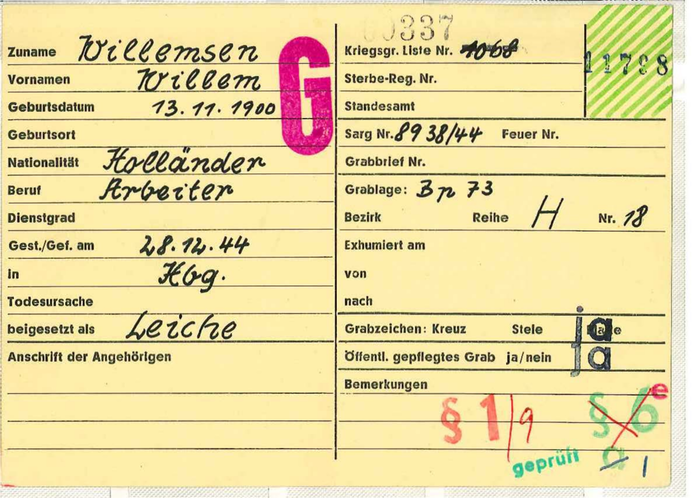 00337
Zuname Willemsen
Vornamen Willem
Geburtsdatum 13.11.1900
Geburtsort
Nationalität Holländer
Beruf Arbeiter
Dienstgrad
Gest./Gef. am 28.12.44
in Hbg.
Todesursache
beigesetzt als Leiche
Anschrift der Angehörigen
G
Kriegsgr. Liste Nr. 1068
11798
Sterbe-Reg. Nr.
Standesamt
Sarg Nr. 8938/44 Feuer Nr.
Grabbrief Nr.
Grablage: Bp 73
Bezirk Reihe H Nr. 18
Exhumiert am
von
nach
Grabzeichen: Kreuz Stele ja
Öffentl. gepflegtes Grab ja/nein ja
Bemerkungen
§ 1/9 § 6 e
geprüft a 1